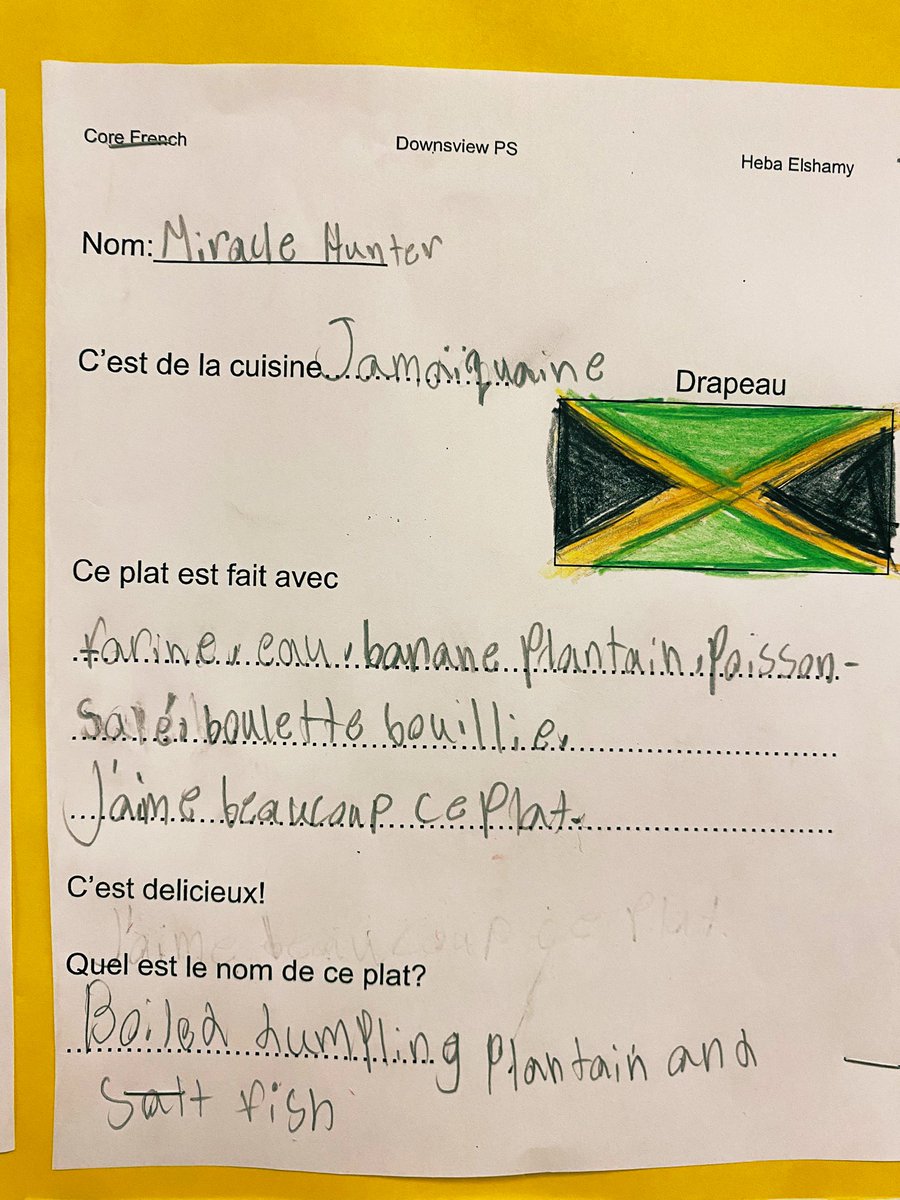 Core French Downsview PS Heba Elshamy
Nom: Miracle Hunter
C'est de la cuisine Jamaïquaine
Drapeau
Ce plat est fait avec
farine, eau, banane Plantain, Poisson-
salé, boulette bouillie,
J'aime beaucoup ce Plat.
C'est delicieux!
J'aime beaucoup ce Plat.
Quel est le nom de ce plat?
Boiled dumpling plantain and
Salt fish